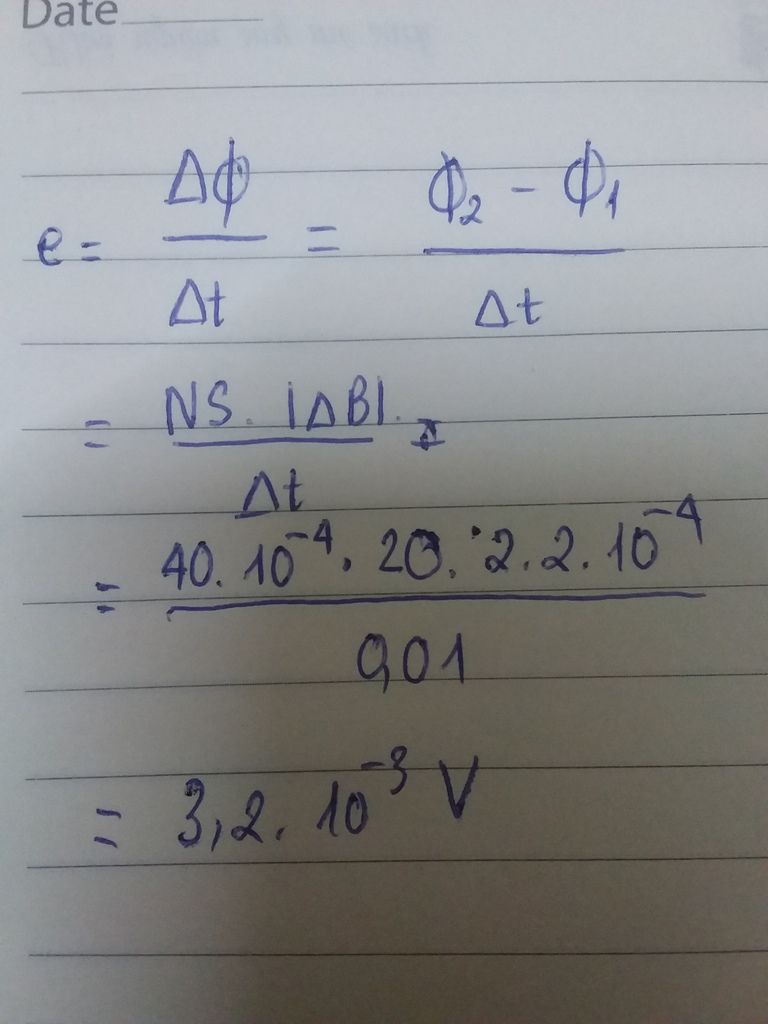 Date
e = Δϕ / Δt = ϕ₂ - ϕ₁ / Δt
= NS. |ΔB|. / Δt
= 40. 10⁻⁴. 20. 2. 2. 10⁻⁴ / 0,01
= 3,2. 10⁻³ V